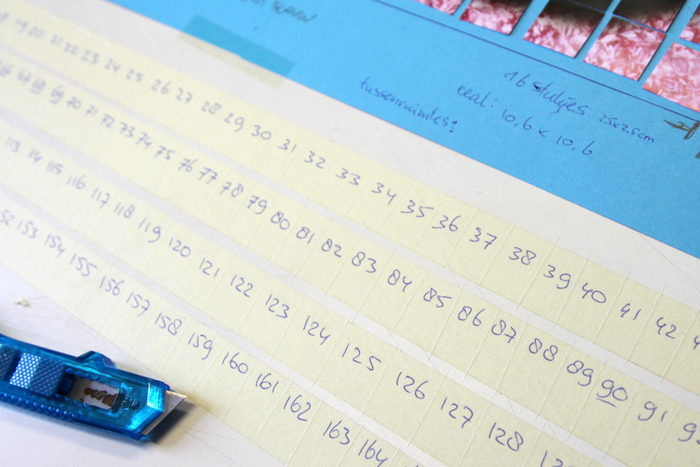 16 stukjes 25x25cm
real: 10,6 x 10,6
tussenruimtes:
19 20 21 22 23 24 25 26 27 28 29 30 31 32 33 34 35 36 37 38 39 40 41 42
68 69 70 71 72 73 74 75 76 77 78 79 80 81 82 83 84 85 86 87 88 89 90 91
113 114 115 116 117 118 119 120 121 122 123 124 125 126 127 128
153 154 155 156 157 158 159 160 161 162 163 164